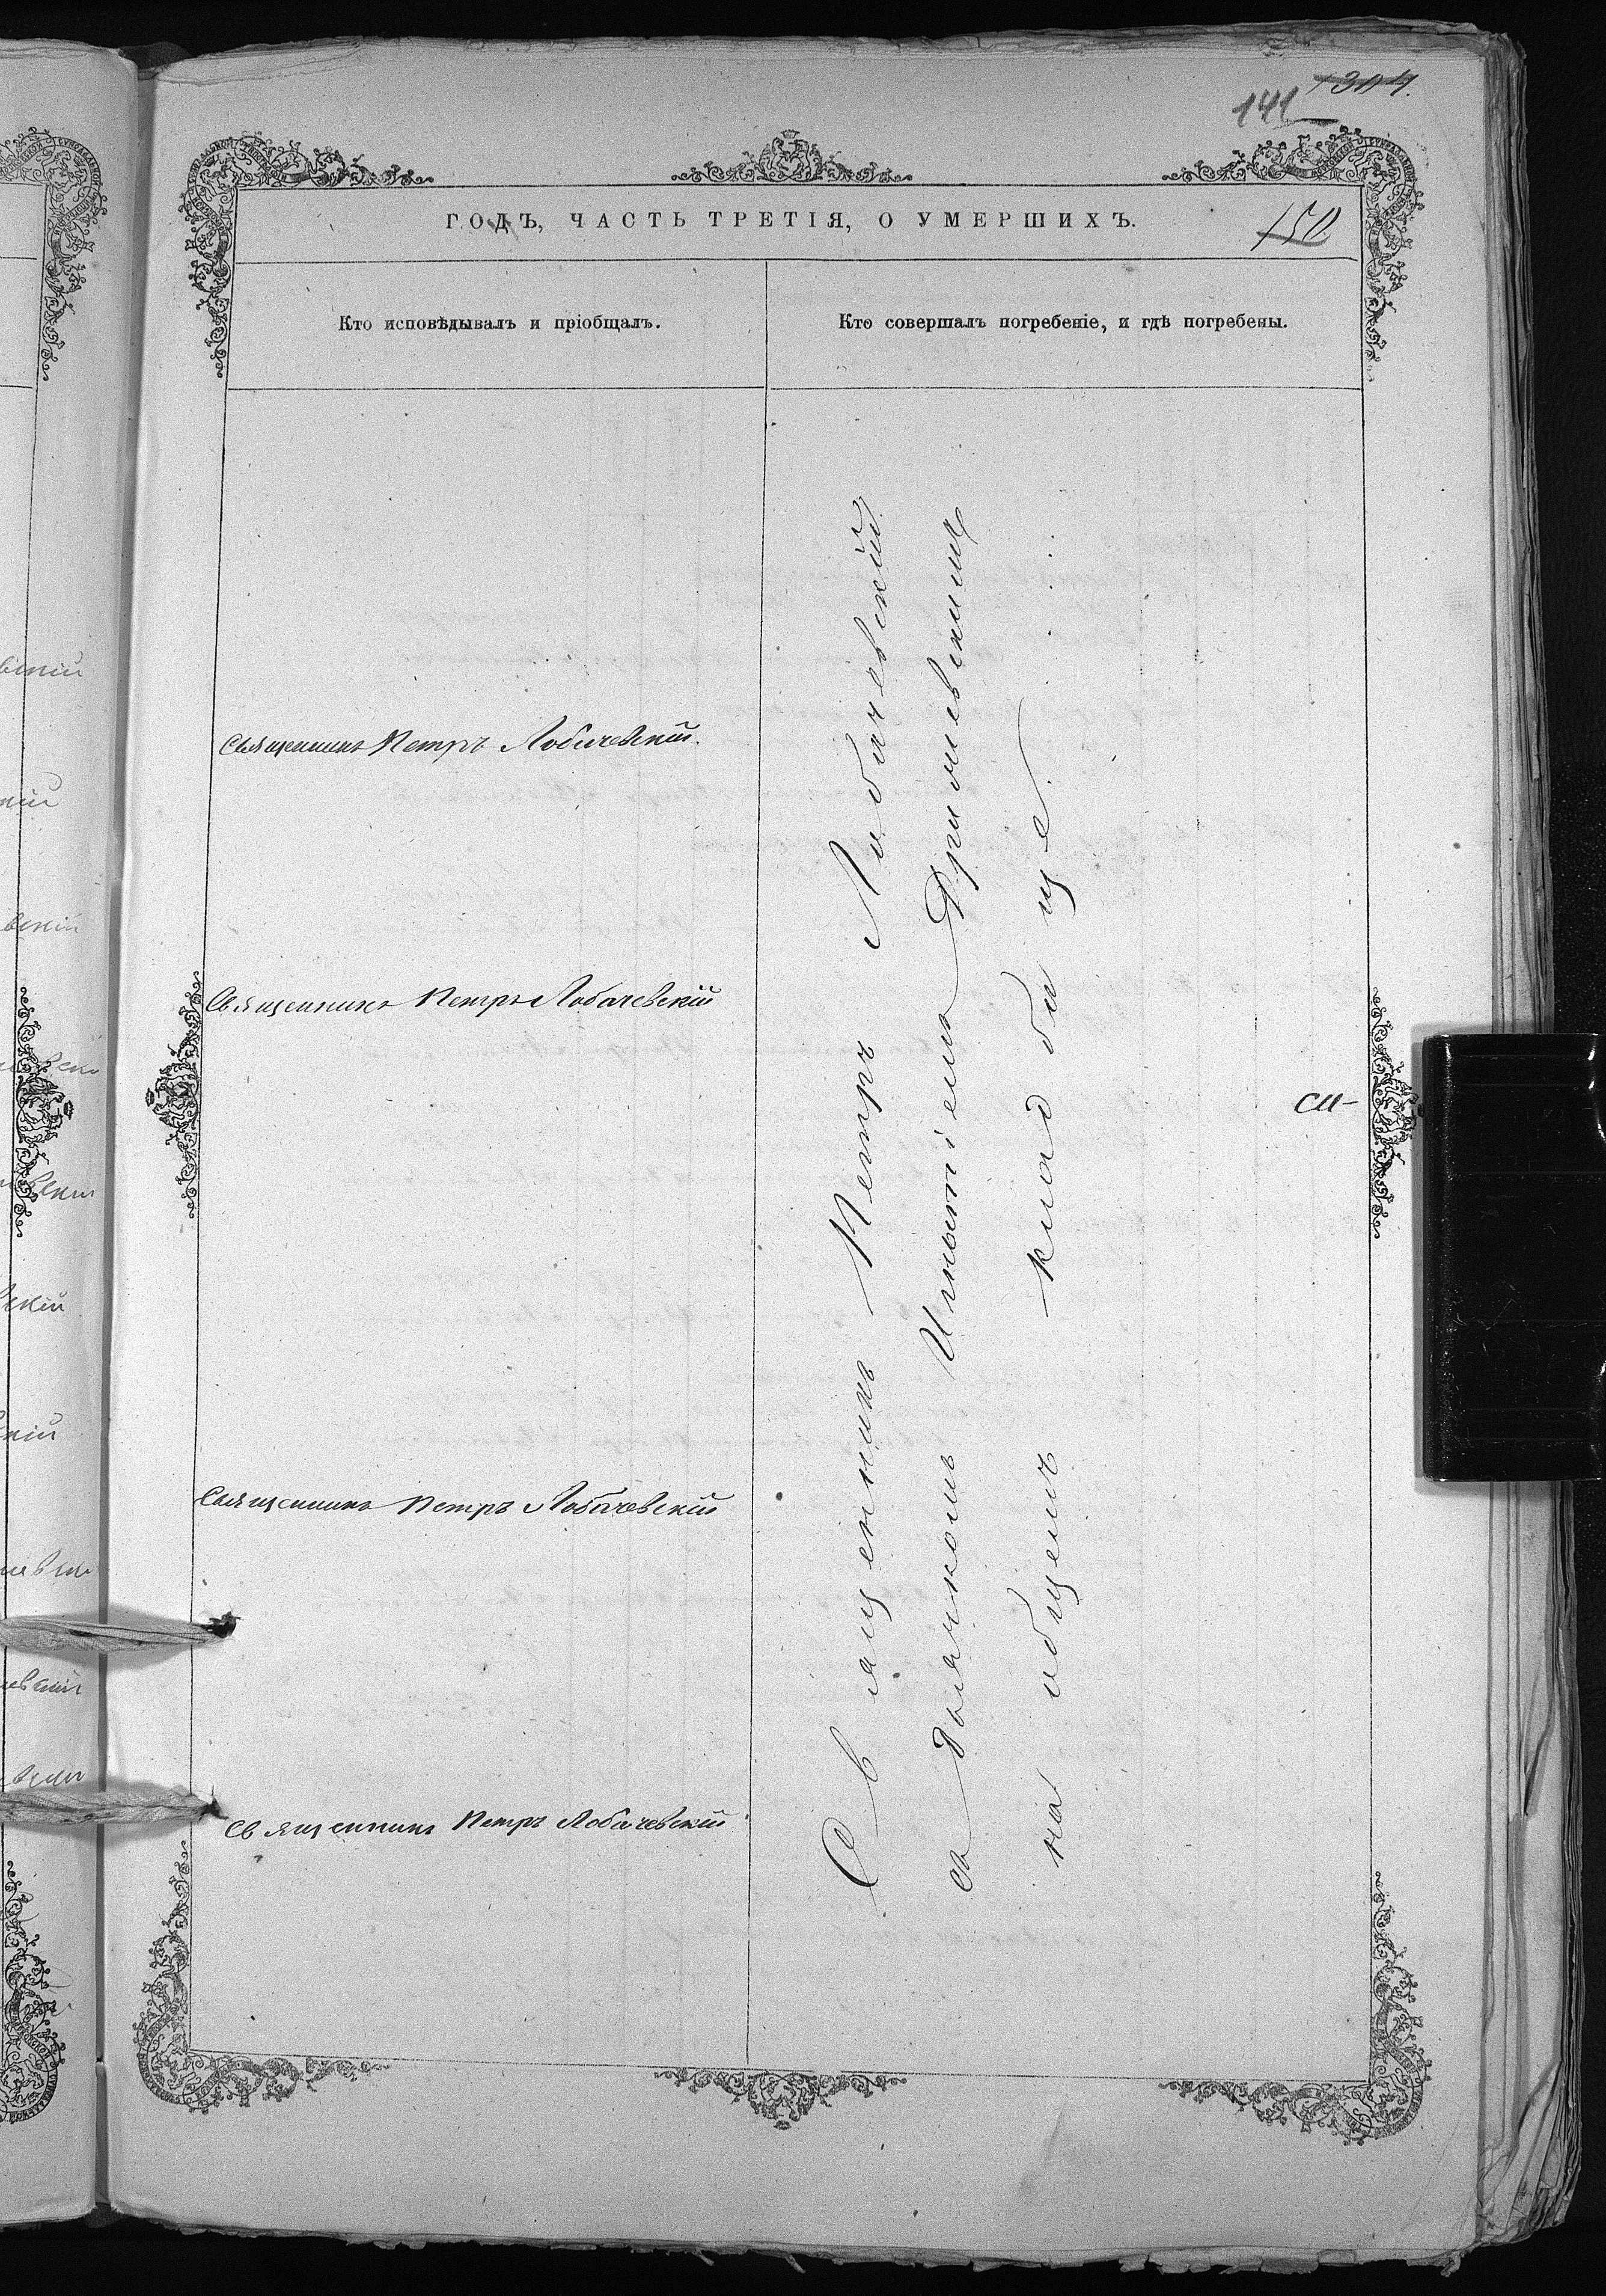 141 1304.
ГОДЪ, ЧАСТЬ ТРЕТІЯ, О УМЕРШИХЪ.
150
Кто исповѣдывалъ и пріобщалъ.
Кто совершалъ погребеніе, и гдѣ погребены.
Священникъ Петръ Лобачевскій.
Священникъ Петръ Лобачевскій
Священникъ Петръ Лобачевскій
Священникъ Петръ Лобачевскій
Священникъ Петръ Лобачевскій
съ дьячкомъ Игнатіемъ
на общемъ кладбище.